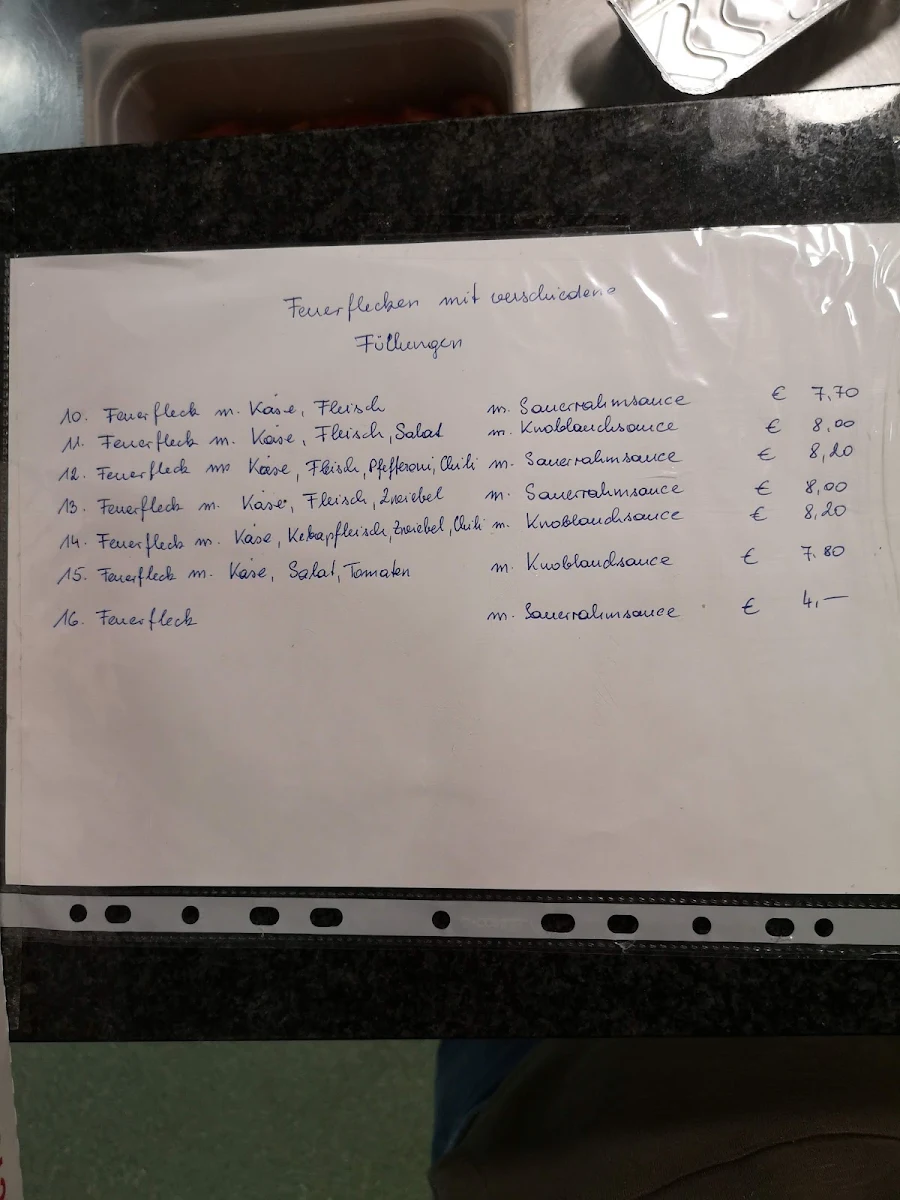 Feuerflecken mit verschiedene
Füllungen
10. Feuerfleck m. Käse, Fleisch m. Sauerrahmsauce € 7,70
11. Feuerfleck m. Käse, Fleisch, Salat m. Knoblauchsauce € 8,00
12. Feuerfleck m. Käse, Fleisch, Pfefferoni, Chili m. Sauerrahmsauce € 8,20
13. Feuerfleck m. Käse, Fleisch, Zwiebel m. Sauerrahmsauce € 8,00
14. Feuerfleck m. Käse, Kebapfleisch, Zwiebel, Chili m. Knoblauchsauce € 8,20
15. Feuerfleck m. Käse, Salat, Tomaten m. Knoblauchsauce € 7,80
16. Feuerfleck m. Sauerrahmsauce € 4,—